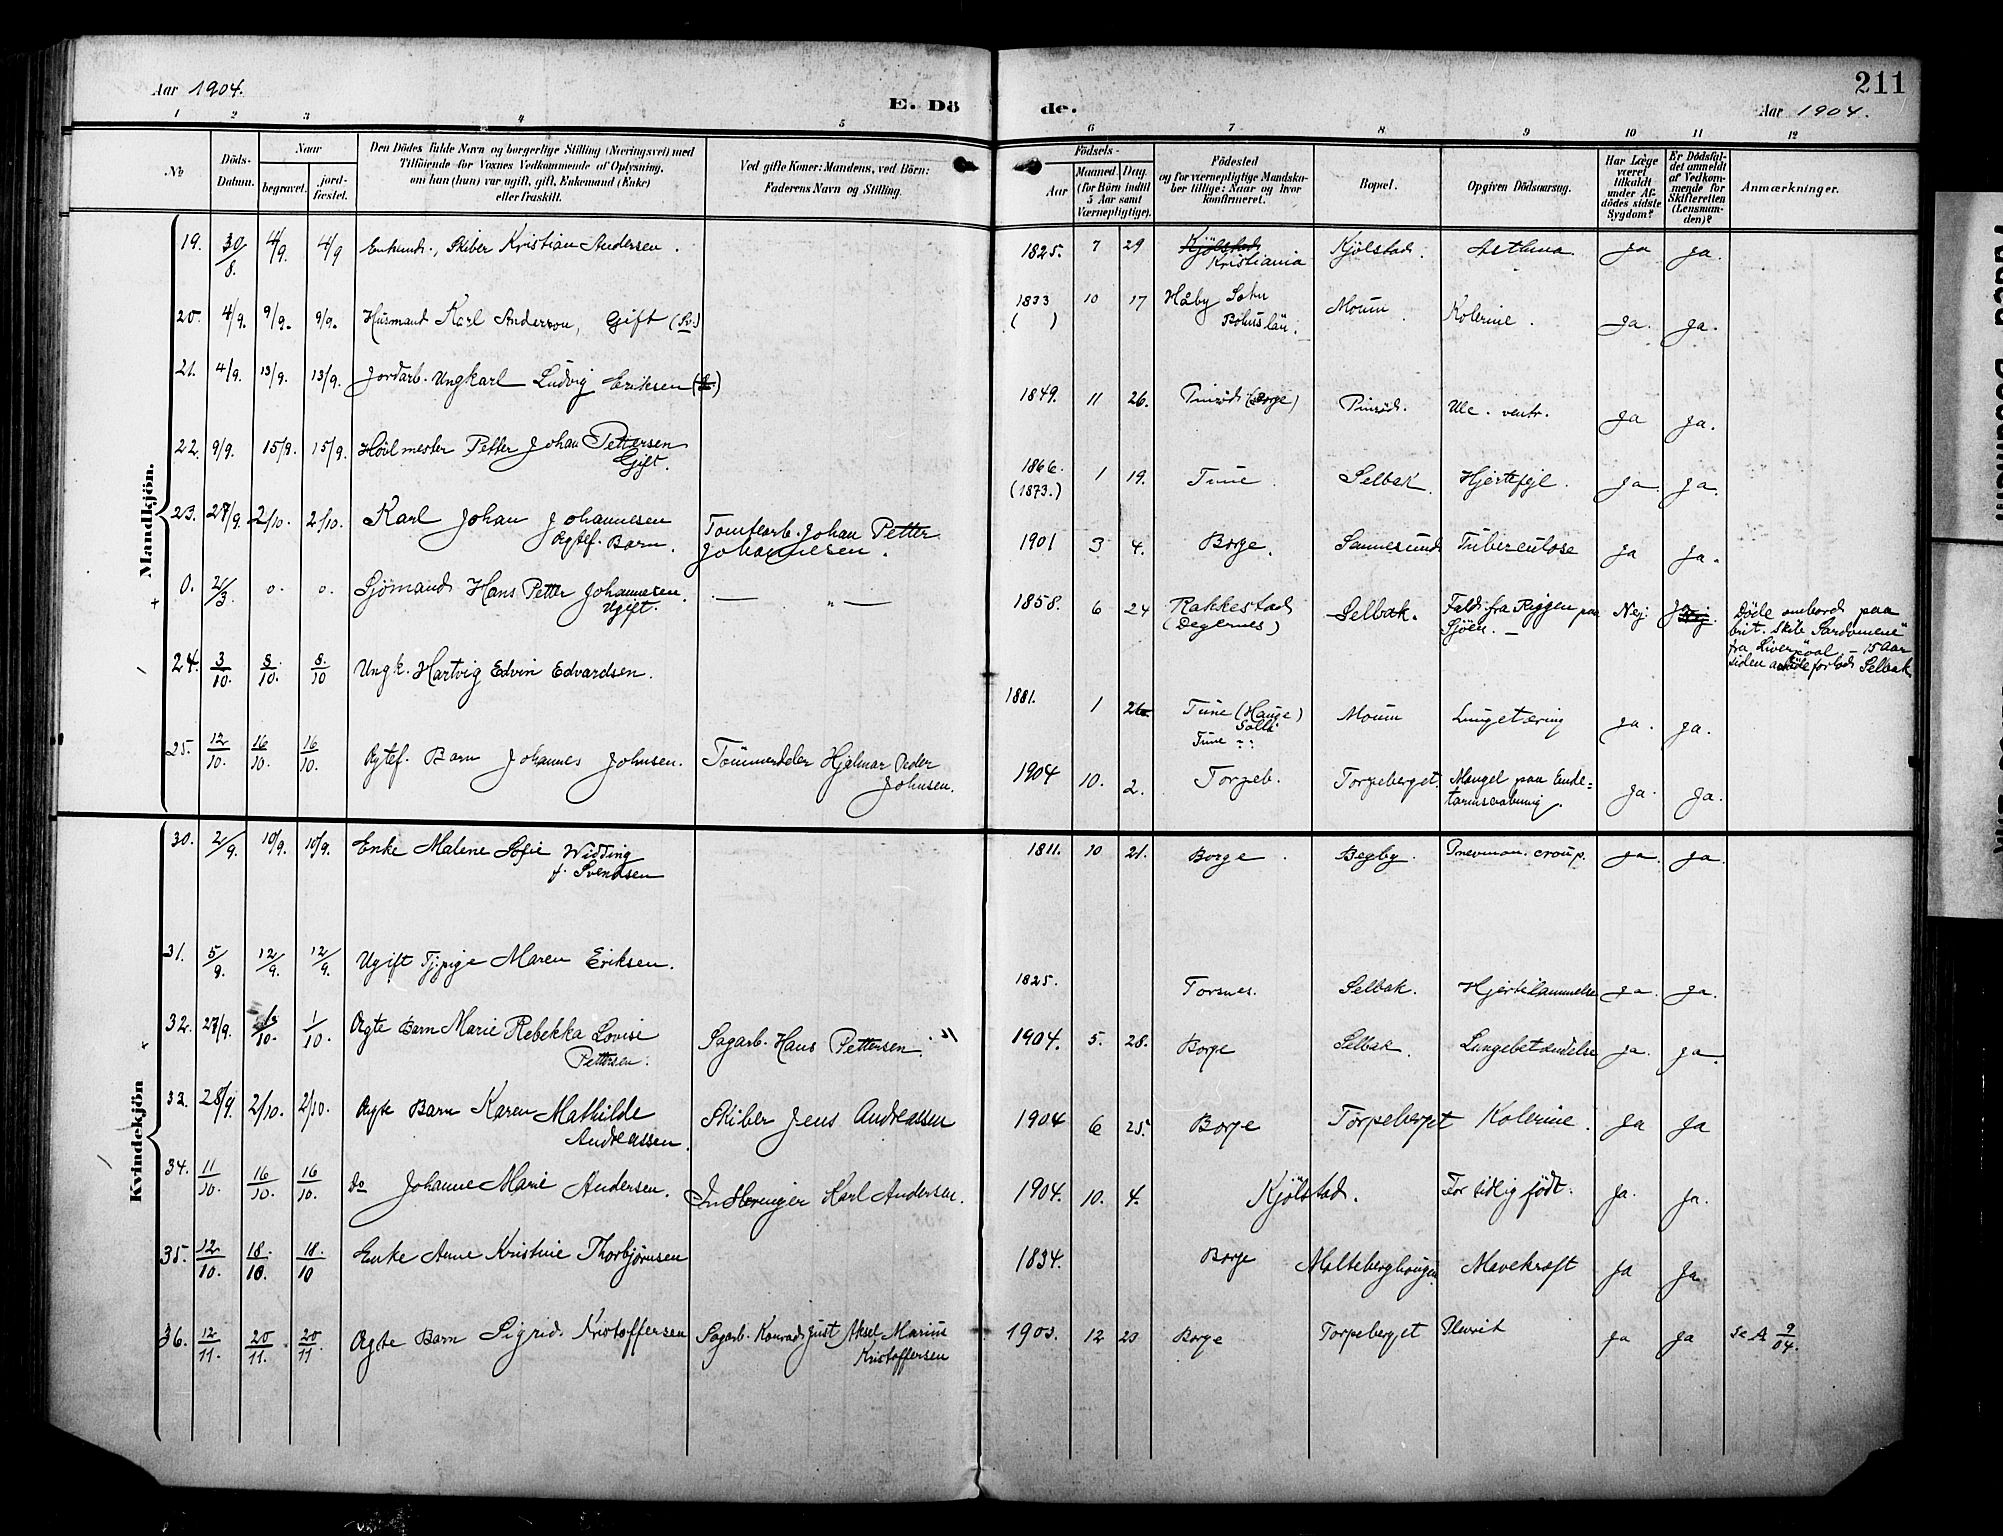 Aar 1904.
E. Dö
de.
211
Aar 1904.
1 2 3 4 5 6 7 8 9 10 11 12
No
Döds-
Datum.
Naar
begravet.
jord-
fæstet.
Den Dödes fulde Navn og borgerlige Stilling (Næringsvei) med
Tilföiende for Voxnes Vedkommende af Oplysning,
om han (hun) var ugift, gift, Enkemand (Enke)
eller fraskilt.
Ved gifte Koner: Mandens, ved Börn:
Faderens Navn og Stilling.
Födsels-
Aar
Maaned. Dag.
(for Börn indtil
5 Aar samt
Værnepligtige).
Födested
og for værnepligtige Mandska-
ber tillige: Naar og hvor
konfirmeret.
Bopæl.
Opgiven Dödsaarsag.
Har Læge
været
tilkaldt
under Af-
dödes sidste
Sygdom?
Er Dödsfal-
det anmeldt
af Vedkom-
mende for
Skifteretten
(Lensman-
den)?
Anmærkninger.
Mandkjön.
19. 30/8. 4/9. 4/9 Enkemd., Skiber Kristian Andersen. 1825. 7 29 Kjölstad Kjölstad. Asthma. Ja Ja.
Kristiania
20. 4/9. 9/9. 9/9. Husmand Karl Andersson, Gift (Sv.) 1833 10 17 Håby Sokn Moum Kolerine. Ja. Ja.
( ) Bohuslän.
21. 4/9. 13/9. 13/9. Jordarb. Ungkarl Ludvig Eriksen 1849. 11 26. (Borge) Ulc. ventr. Ja Ja.
22. 9/9. 15/9. 15/9. Hövlmester Petter Johan Pettersen 1866. 1 19. Tune. Selbak. Hjertefejl. Ja. Ja.
Gift. (1873.)
23. 27/9. 2/10. 2/10. Karl Johan Johannesen Tomtearb. Johan Petter 1901 3 4. Borge. Sannesund Tuberculose Ja Ja.
Ægtef. Barn. Johannesen.
0. 2/3. 0. 0. Sjömand Hans Petter Johannesen. — „ — 1858. 6 24 Rakkestad Selbak. Faldt fra Riggen paa Nej Döde ombord paa
Ugift. (Degernes) Sjöen. — brit. Skib
fra Liverpool. — 15 Aar
siden forlod Selbak
24. 3/10. 8/10. 8/10 Ungk. Hartvig Edvin Edvardsen. 1881. 1 26. Tune (Hauge) Moum Lungetæring Ja. Ja.
Tune
25. 12/10. 16/10. 16/10. Ægtef. Barn Johannes Johnsen. Tömmerdeler Hjalmar 1904 10. 2. Torpeb. Torpeberget. Mangel paa Ende- Ja. Ja.
Johnsen. tarmsaabning.
Kvindekjön
30. 2/9. 10/9. 10/9. Enke Malene Sofie Widding 1811. 10 21. Borge. Begby. Pnevmon. croup. Ja. Ja.
f. Svendsen
31. 5/9. 12/9. 12/9. Ugift Tj.pige Maren Eriksen. 1825. Torsnes. Selbak. Hjertelammelse Ja. Ja.
32. 27/9. 1/10. 1/10. Ægte Barn Marie Rebekka Lovise Sagarb. Hans Pettersen. 1904. 5. 28. Borge Selbak. Lungebetændelse Ja. Ja.
Pettersen.
33. 28/9. 2/10. 2/10. Ægte Barn Karen Mathilde Skiber Jens Andreassen 1904 6 25. Borge Torpeberget Kolerine. Ja Ja
Andreassen.
34. 11/10. 16/10. 16/10. Do Johanne Marie Andersen. Karl Andersen. 1904. 10. 4. Kjölstad. For tidlig född. Ja. Ja.
35. 12/10. 18/10. 18/10 Enke Anne Kristine Thorbjörnsen 1834. Borge Malteberghaugen Mavekræft Ja Ja
36. 12/11. 20/11. 20/11 Ægte Barn Sigrid Kristoffersen Sagarb. Konrad Just Aksel Marius 1903. 12 20 Borge Torpeberget Plevrit Ja Ja Se A 9/04.
Kristoffersen